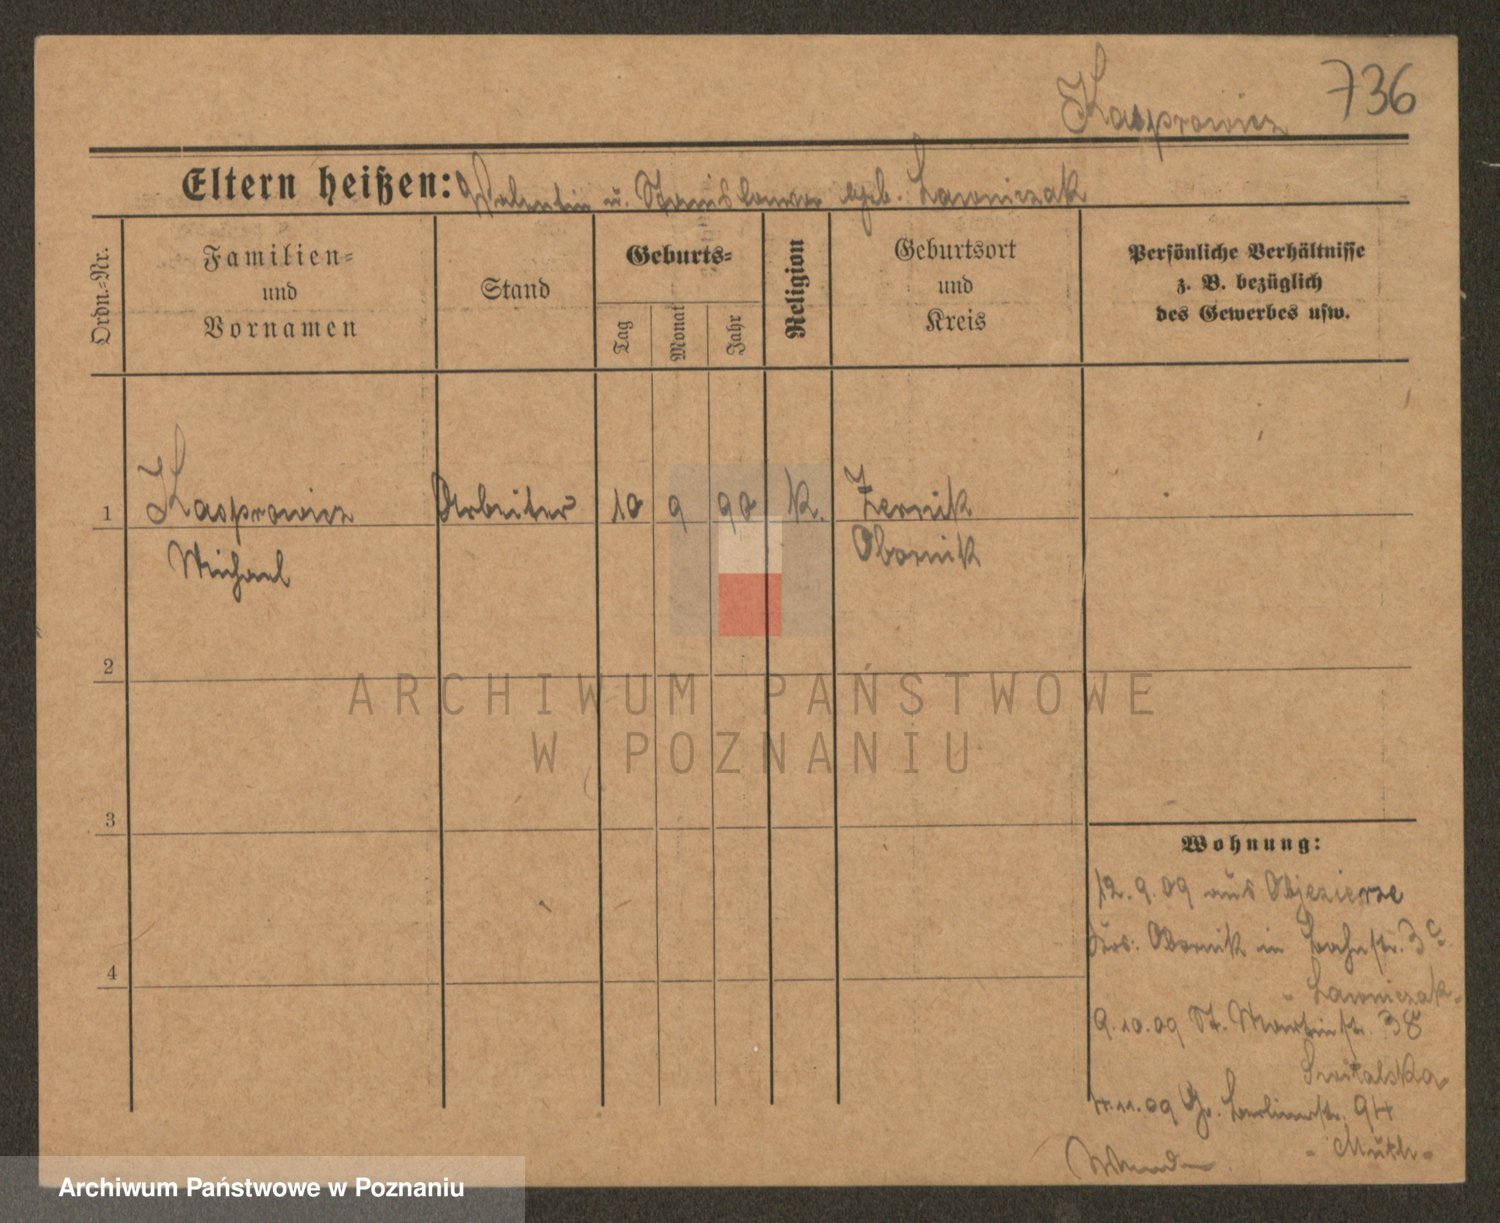 Kasprowicz 736
Eltern heißen: Valentin u. Stanislawa geb. Lawniczak
Ordn.-Nr.
Familien-
und
Vornamen
Stand
Geburts-
Tag
Monat
Jahr
Religion
Geburtsort
und
Kreis
Persönliche Verhältnisse
z. B. bezüglich
des Gewerbes usw.
1 Kasprowicz Arbeiter 10 9 90 k. Zernik
Michael Obornik
2
ARCHIWUM PAŃSTWOWE
W POZNANIU
3
4
Wohnung:
12.9.09 aus Objezierze
Krs. Obornik in Bahnstr. 3c
- Lawniczak -
9.10.09 St. Martinstr. 38
Switalska
4.11.09 Gr. Berlinerstr. 94
- Muth -
Wenden
Archiwum Państwowe w Poznaniu